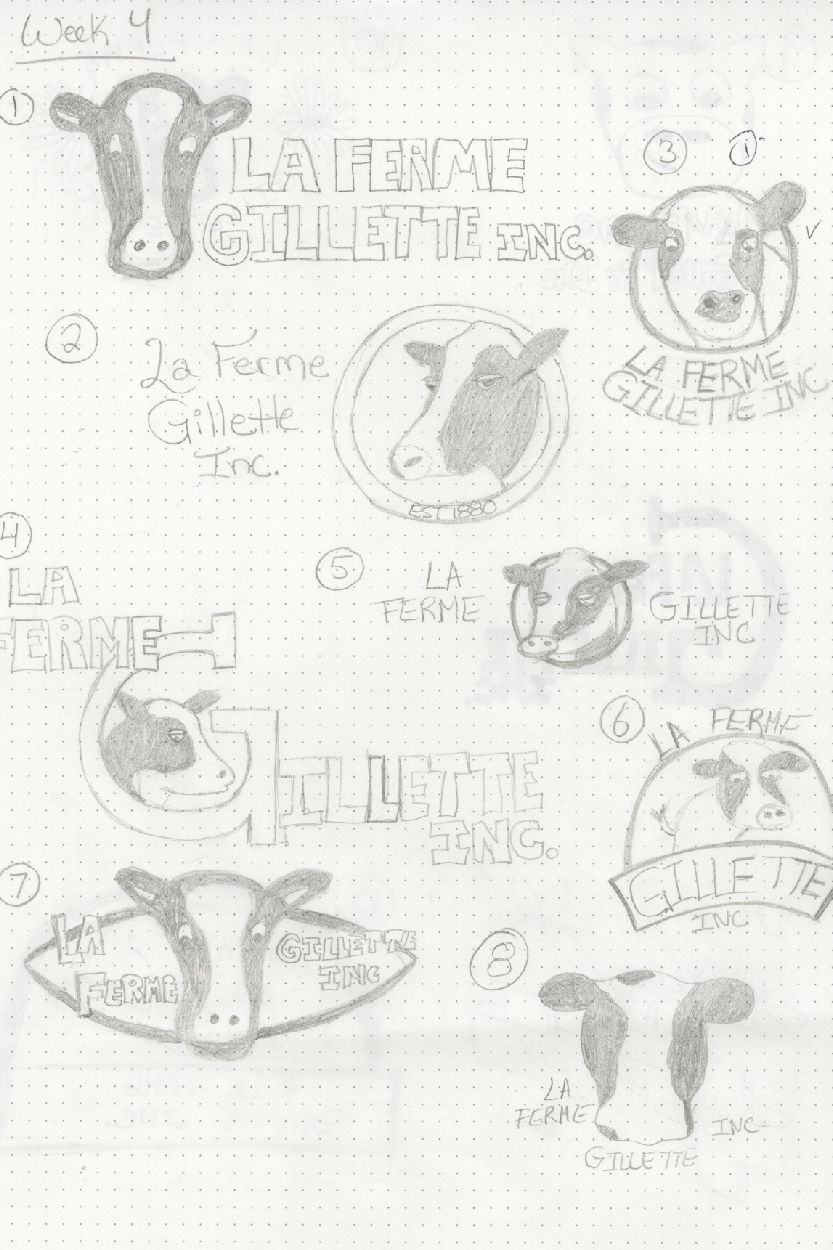 Week 4
1
LA FERME
GILLETTE INC.
3
1
LA FERME
GILLETTE INC
2
La Ferme
Gillette
Inc.
EST 1880
4
LA
FERME
GILLETTE
INC.
5
LA
FERME
GILLETTE
INC
6
LA FERME
GILLETTE
INC
7
LA
FERME
GILLETTE
INC
8
LA
FERME
GILLETTE
INC